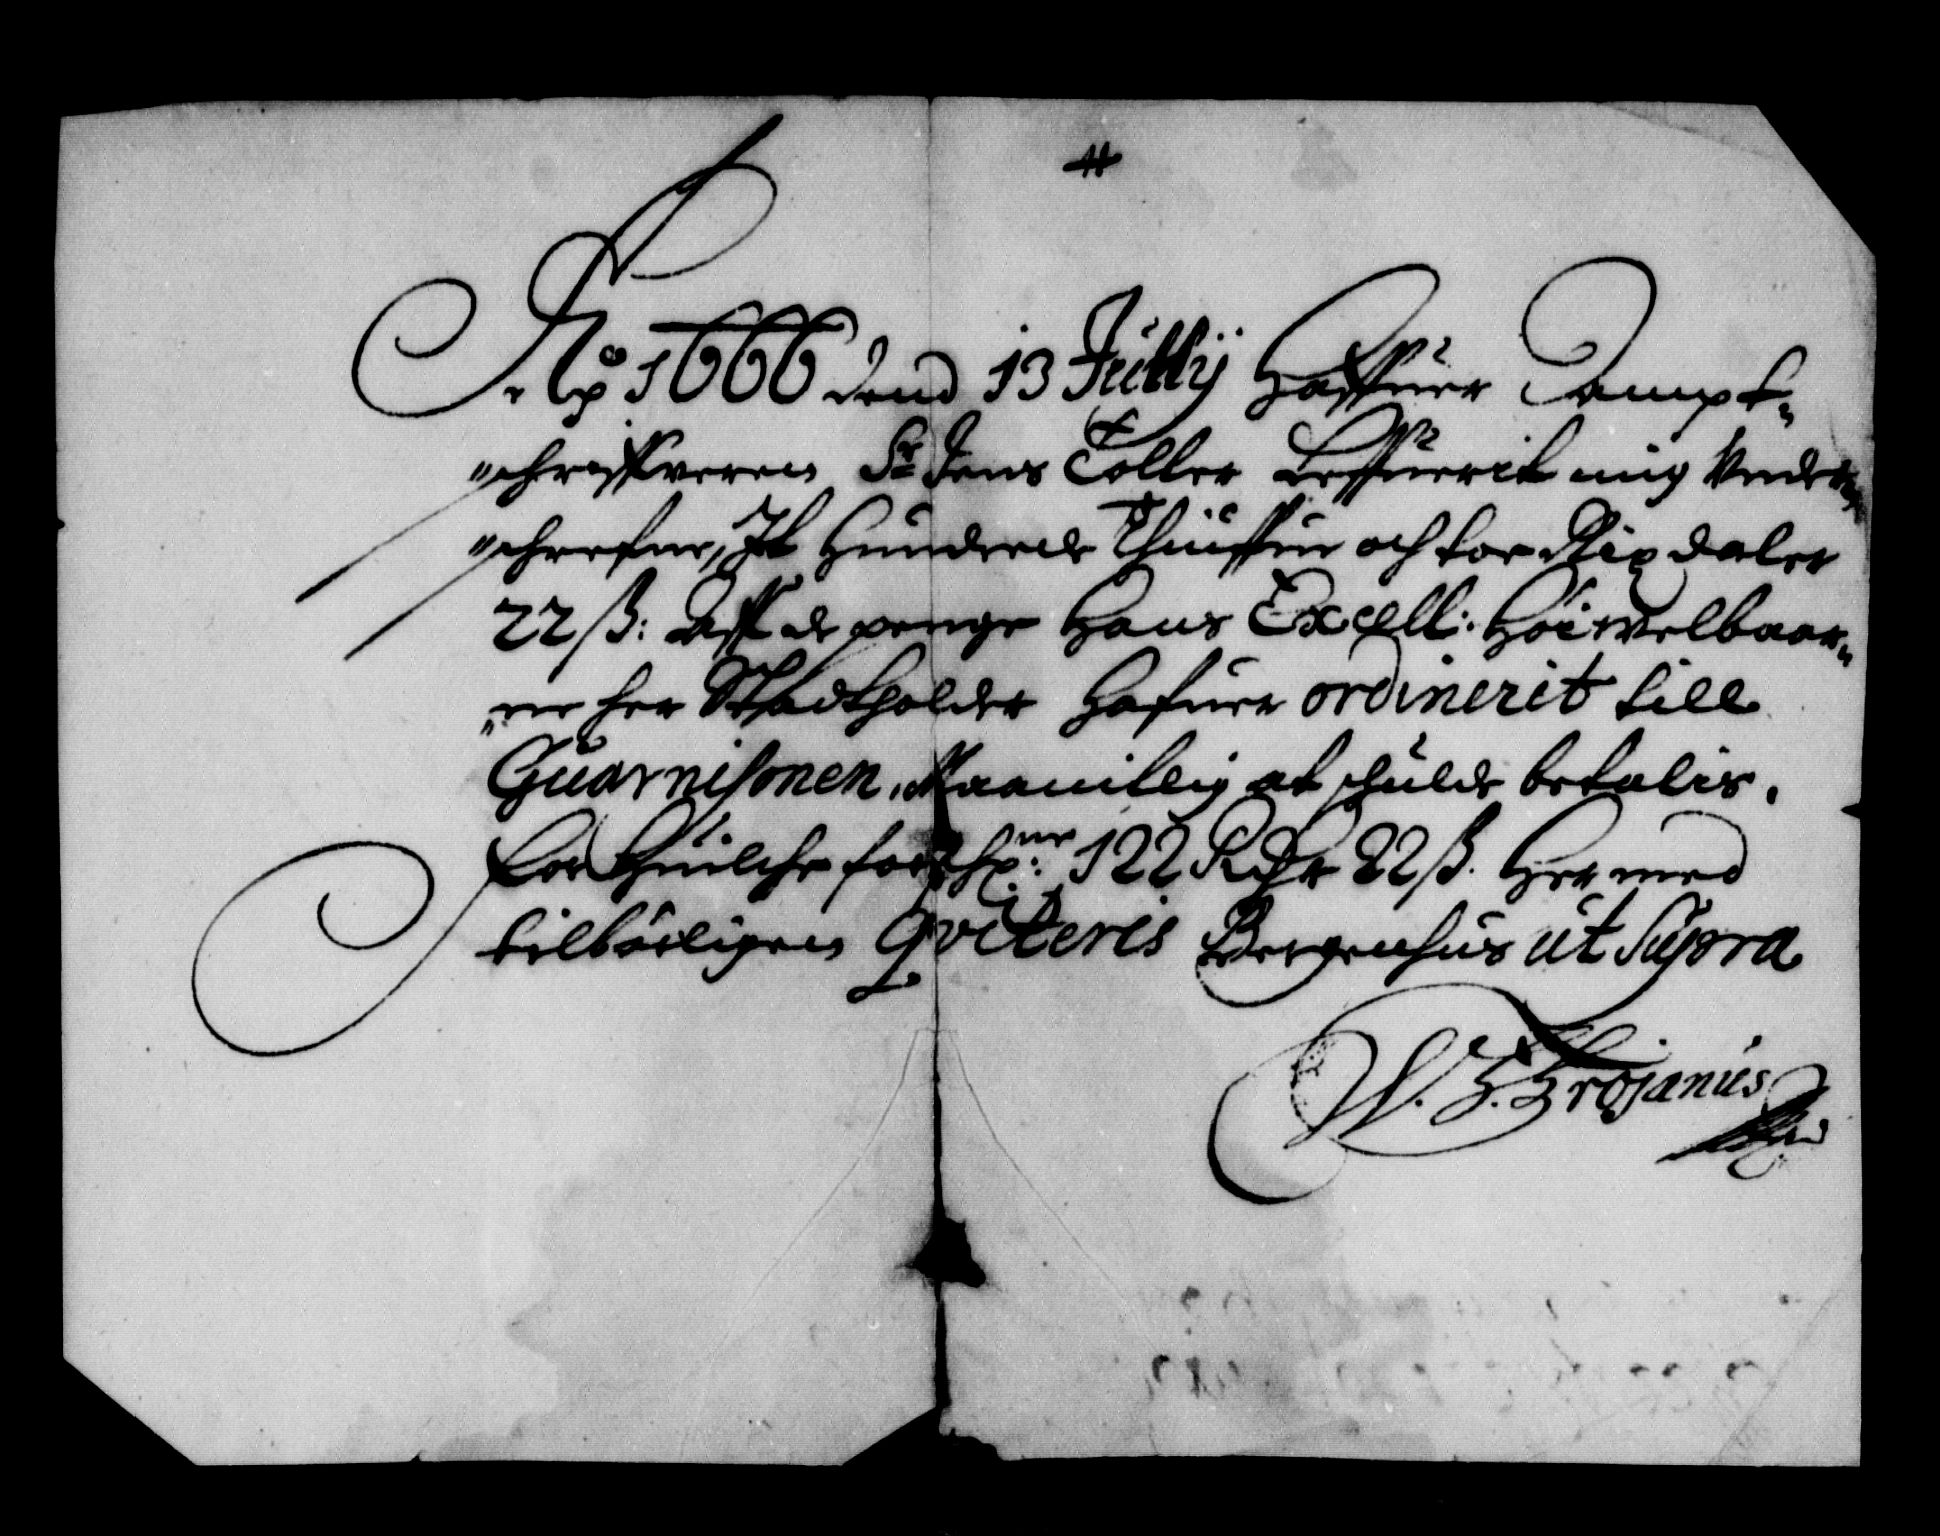 Ao 1666 dend 13 Jullij Haffuer Camps-
schrifveren Sr Jens Toller Leffuerit mig Under
schrefne, Et Hunderde Thiuffue och toe Rixdaler
22 ß: Aff de penge Hans Excell: Höiwelbaar-
ne her Stadtholder Hafuer ordinerit till
Guarnisonen, Maanitlig at schulde betalis,
For Huilche forschne: 122 Rdr 22 ß. Hermed
tilbörligen Qviteris Bergenhus ut Supra
W. Trojanus